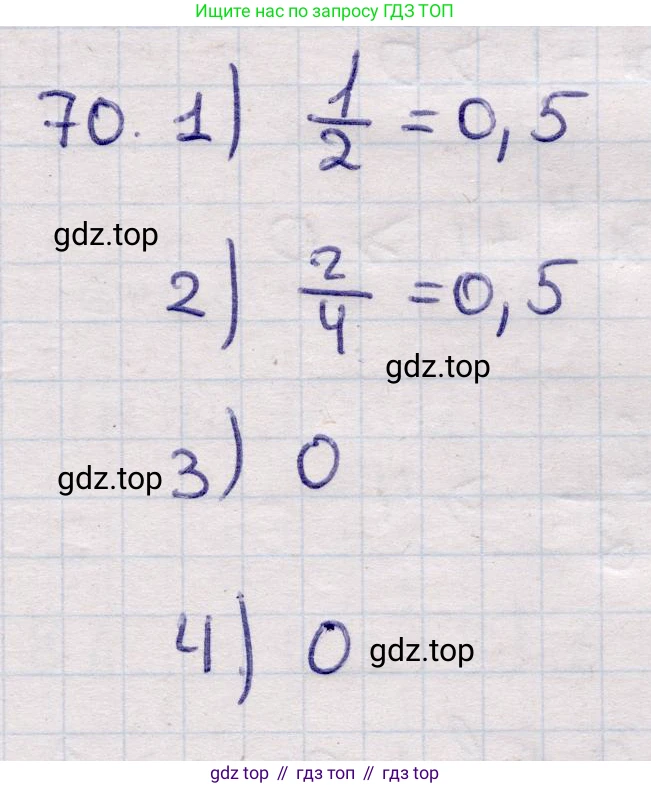 Ищите нас по запросу ГДЗ ТОП
70. 1) 1/2 = 0,5
gdz.top
2) 2/4 = 0,5
gdz.top
gdz.top 3) 0
4) 0 gdz.top
gdz top // гдз топ // gdz top